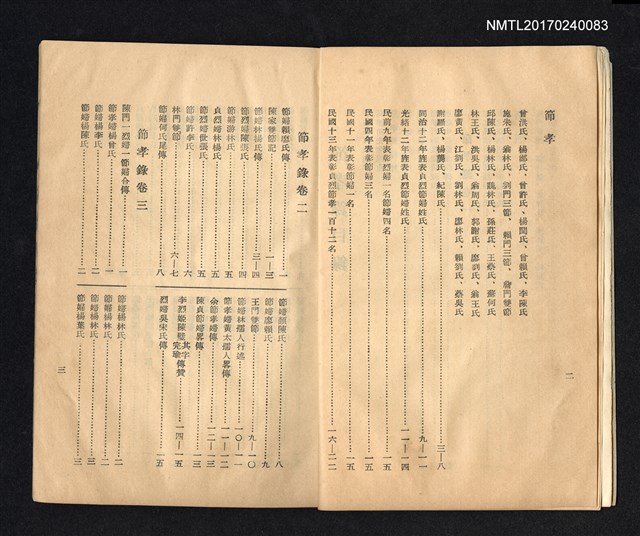 NMTL20170240083
節孝
曾洪氏、楊鄭氏、曾許氏、楊閔氏、曾賴氏、李陳氏
施朱氏、翁林氏、劉門三節、賴門三節、詹門雙節
邱陳氏、楊林氏、魏林氏、孫莊氏、王蔡氏、蘇何氏
林王氏、洪吳氏、翁周氏、郭謝氏、廖劉氏、翁王氏
廖黃氏、江劉氏、劉林氏、廖林氏、賴劉氏、蔡吳氏
謝羅氏、楊龔氏、紀陳氏……三—八
同治十二年旌表貞烈節婦姓氏……九—一一
光緒十二年旌表貞烈節婦姓氏……一一—一四
民前九年表彰節婦一名節婦四名……一五
民國四年表彰節婦三名……一五
民國十一年表彰節婦一名……一五
民國十三年表彰貞烈節孝一百十二名……一六—二二
二
節孝錄卷二
節婦賴廖氏傳……一
陳家雙節記……一—三
節婦林楊氏傳……三—四
節烈婦陳張氏……四
節婦游林氏……五
貞烈婦林楊氏……五
節烈婦世張氏……五
節婦許李氏……六
林門雙節……六—七
節婦何氏尾傳……八
節婦顏陳氏……八
節婦廖賴氏……九
王門雙節……九—一〇
節婦林孺人行述……一〇—一一
節孝婦黃太孺人畧傳……一一—一二
余節孝婦傳……一二—一三
陳貞節婦畧傳……一三
李烈姬陳璧其字完瑜傳贊……一四—一五
烈婦吳宋氏傳……一五
節孝錄卷三
陳門一烈婦一節婦合傳……一
節孝婦楊曾氏……一
節婦楊李氏……二
節婦楊陳氏……二
節婦楊林氏……二
節婦楊林氏……二
節婦楊林氏……三
節婦楊葉氏……三
三